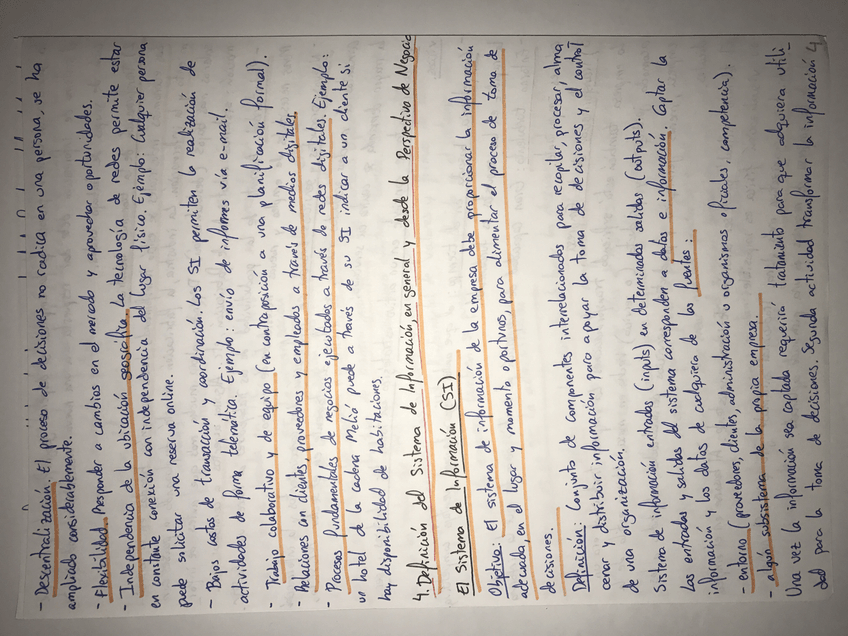 - Descentralización. El proceso de decisiones no radica en una persona, se ha
ampliado considerablemente.
- Flexibilidad. Responder a cambios en el mercado y aprovechar oportunidades.
- Independencia de la ubicación geográfica. La tecnología de redes permite estar
en constante conexión con independencia del lugar físico. Ejemplo: Cualquier persona
puede solicitar una reserva online.
- Bajos costos de transacción y coordinación. Los SI permiten la realización de
actividades de forma telemática. Ejemplo: envío de informes vía e-mail.
- Trabajo colaborativo y de equipo (en contraposición a una planificación formal).
- Relaciones con clientes proveedores y empleados a través de medios digitales.
- Procesos fundamentales de negocios ejecutados a través de redes digitales. Ejemplo:
un hotel de la cadena Meliá puede a través de su SI indicar a un cliente si
hay disponibilidad de habitaciones.
4. Definición del Sistema de Información, en general y desde la Perspectiva de Negocio
El Sistema de Información (SI)
Objetivo: El sistema de información de la empresa debe proporcionar la información
adecuada, en el lugar y momento oportunos, para alimentar el proceso de toma de
decisiones.
Definición: Conjunto de componentes interrelacionados para recopilar, procesar, alma
cenar y distribuir información para apoyar la toma de decisiones y el control
de una organización.
Sistema de información entradas (inputs) en determinadas salidas (outputs).
Las entradas y salidas del sistema corresponden a datos e información. Captar la
información y los datos de cualquiera de las fuentes:
- entorno (proveedores, clientes, administración u organismos oficiales, competencia).
- algún subsistema de la propia empresa.
Una vez la información sea captada requerirá tratamiento para que adquiera utili-
dad para la toma de decisiones. Segunda actividad transformar la información 4